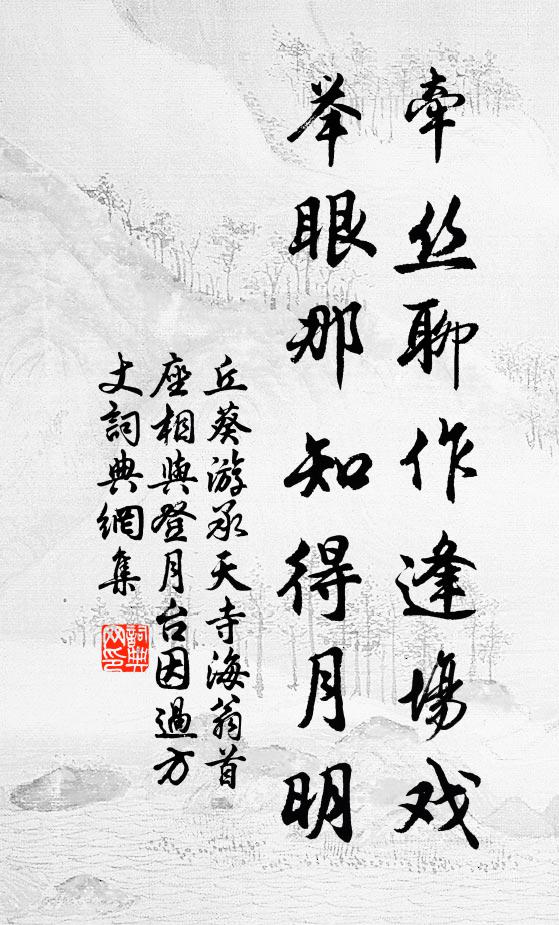 牵丝聊作逢場戏
举眼那知得月明
丘葵游承天寺海翁首
座相与登月台因過方
丈詞典網集
詞典
网印